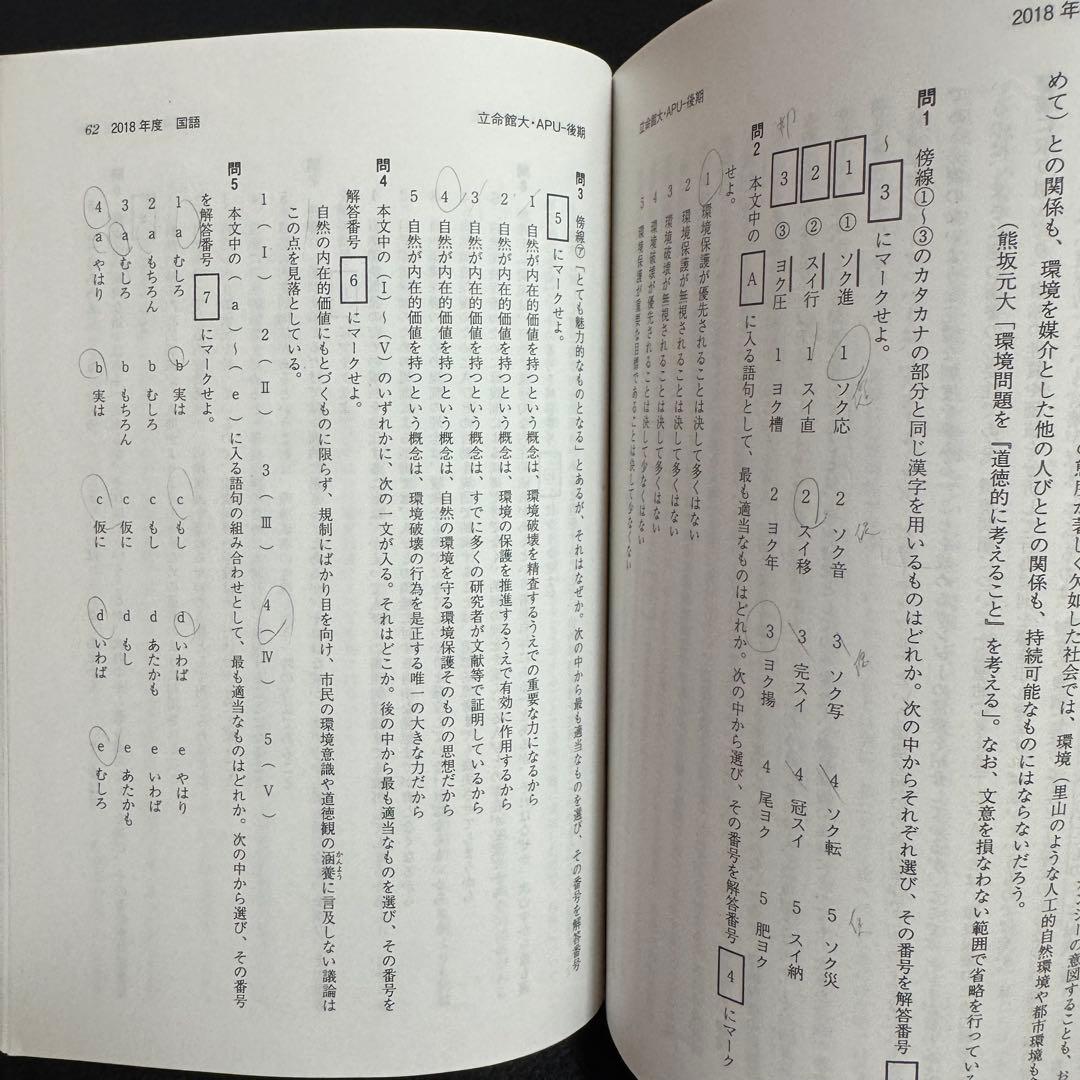 2018年
めて）との関係も、環境を媒介とした他の人びととの関係も、持続可能なものにはならないだろう。
（熊坂元大「環境問題を『道徳的に考えること』を考える」。なお、文意を損なわない範囲で省略を行っている
立命館大・APU-後期
問1 傍線①～③のカタカナの部分と同じ漢字を用いるものはどれか。次の中からそれぞれ選び、その番号を解答番号
1
～
3
にマークせよ。
1 ① ソク進 1 ソク応 2 ソク音 3 ソク写 4 ソク転 5 ソク災
2 ② スイ行 1 スイ直 2 スイ移 3 完スイ 4 冠スイ 5 スイ納
3 ③ ヨク圧 1 ヨク槽 2 ヨク年 3 ヨク揚 4 尾ヨク 5 肥ヨク
問2 本文中の A に入る語句として、最も適当なものはどれか。次の中から選び、その番号を解答番号 4 にマーク
せよ。
1 環境保護が優先されることは決して多くはない
2 環境保護が無視されることは決して多くはない
3 環境破壊が無視されることは決して多くはない
4 環境破壊が優先されることは決して少なくはない
5 環境保護が重要な目標であることは決して少なくない
62 2018年度 国語
立命館大・APU-後期
問3 傍線⑦「とても魅力的なものとなる」とあるが、それはなぜか。次の中から最も適当なものを選び、その番号を解答番号
5 にマークせよ。
1 自然が内在的価値を持つという概念は、環境破壊を精査するうえでの重要な力になるから
2 自然が内在的価値を持つという概念は、環境の保護を推進するうえで有効に作用するから
3 自然が内在的価値を持つという概念は、すでに多くの研究者が文献等で証明しているから
4 自然が内在的価値を持つという概念は、自然の環境を守る環境保護そのものの思想だから
5 自然が内在的価値を持つという概念は、環境破壊の行為を是正する唯一の大きな力だから
問4 本文中の（Ⅰ）～（Ⅴ）のいずれかに、次の一文が入る。それはどこか。後の中から最も適当なものを選び、その番号を
解答番号 6 にマークせよ。
自然の内在的価値にもとづくものに限らず、規制にばかり目を向け、市民の環境意識や道徳観の涵養に言及しない議論は
かんよう
この点を見落としている。
1（Ⅰ） 2（Ⅱ） 3（Ⅲ） 4（Ⅳ） 5（Ⅴ）
問5 本文中の（a）～（e）に入る語句の組み合わせとして、最も適当なものはどれか。次の中から選び、その番号
を解答番号 7 にマークせよ。
1 a むしろ b 実は c もし d いわば e やはり
2 a もちろん b むしろ c もし d あたかも e いわば
3 a むしろ b もちろん c 仮に d もし e あたかも
4 a やはり b 実は c 仮に d いわば e むしろ